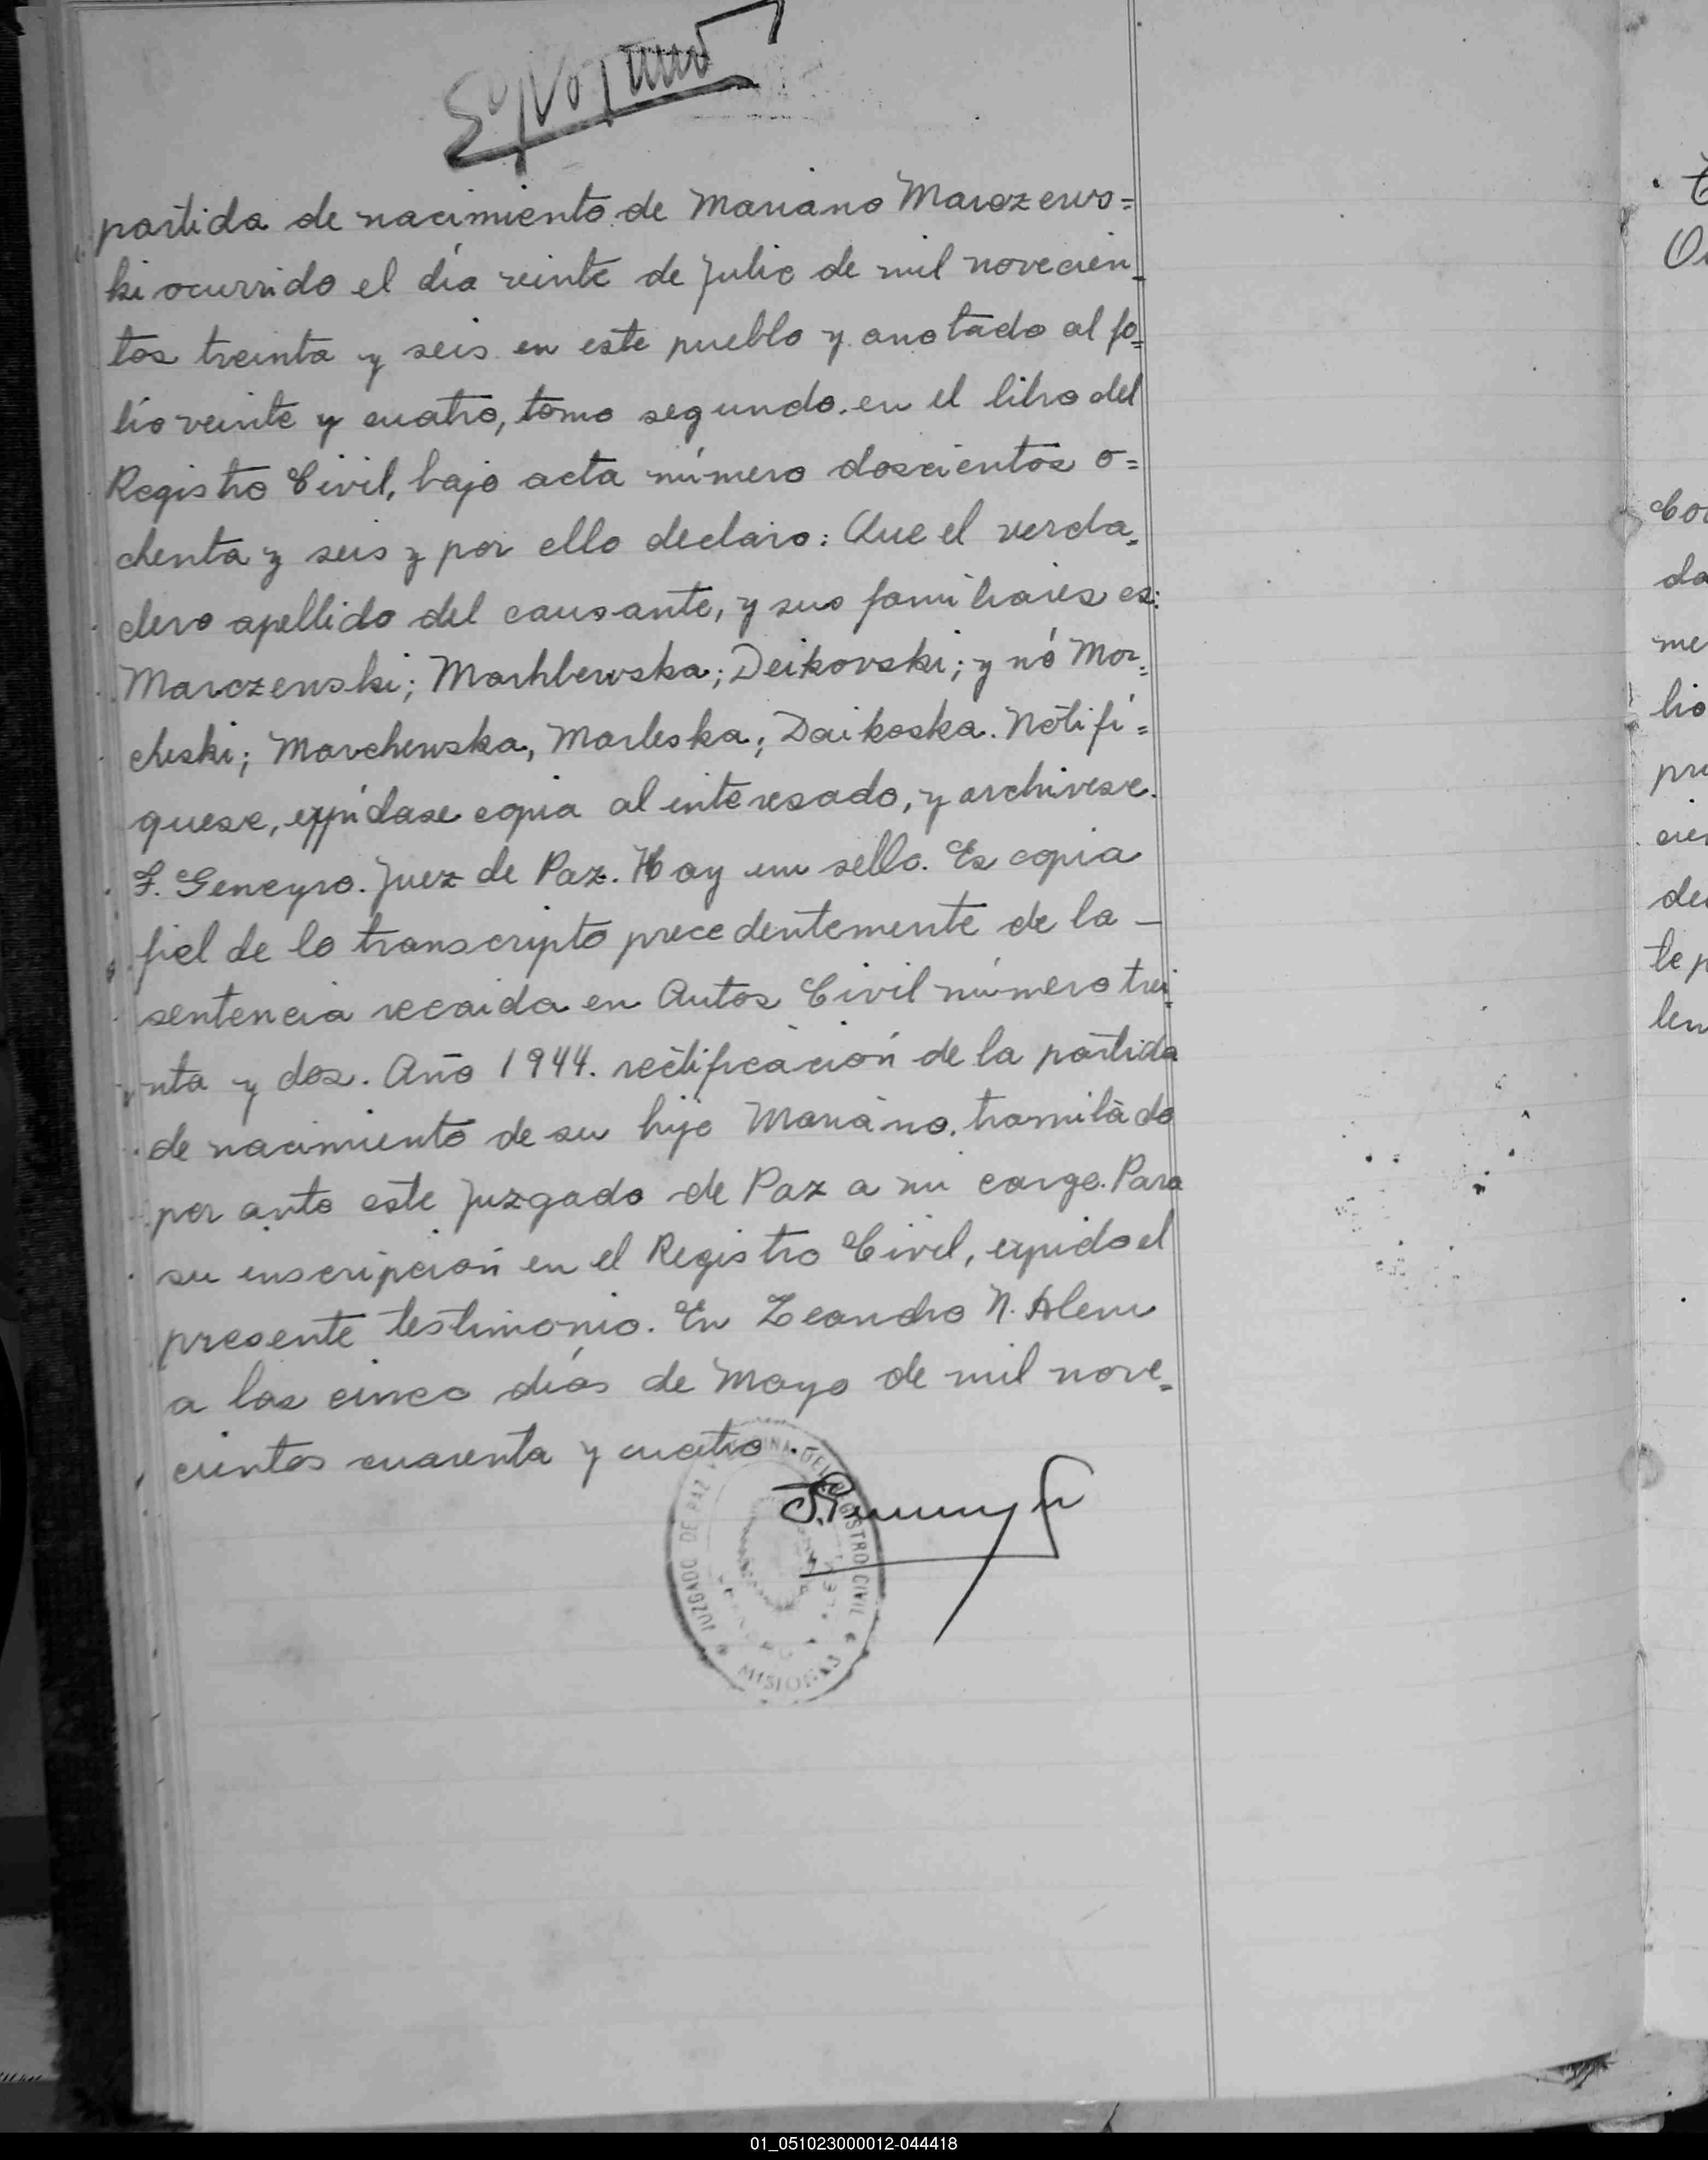 partida de nacimiento de Mariano Marczews=
ki ocurrido el día veinte de Julio de mil novecien_
tos treinta y seis en este pueblo y anotado al fo=
lio veinte y cuatro, tomo segundo en el libro del
Registro Civil, bajo acta número doscientos o=
chenta y seis y por ello declaro: Que el verda=
dero apellido del causante, y sus familiares es:
Marczewski; Marhlewska; Deikovski; y nó Mar=
cheski; Marchewska, Marleska; Daikoska. Notifí=
quese, expídase copia al interesado, y archívese.
F. Geneyro. Juez de Paz. Hay un sello. Es copia
fiel de lo transcripto precedentemente de la —
sentencia recaida en Autos Civil número trei_
nta y dos. Año 1944. rectificación de la partida
de nacimiento de su hijo Mariano. tramitado
por ante este Juzgado de Paz a mi cargo. Para
su inscripción en el Registro Civil, expido el
presente testimonio. En Leandro N. Alem
a los cinco días de Mayo de mil nove=
cientos cuarenta y cuatro.-
JUZGADO DE PAZ
DEL REGISTRO CIVIL
MISIONES
da
me
lio
pr
cie
de
te p
len
01_051023000012-044418